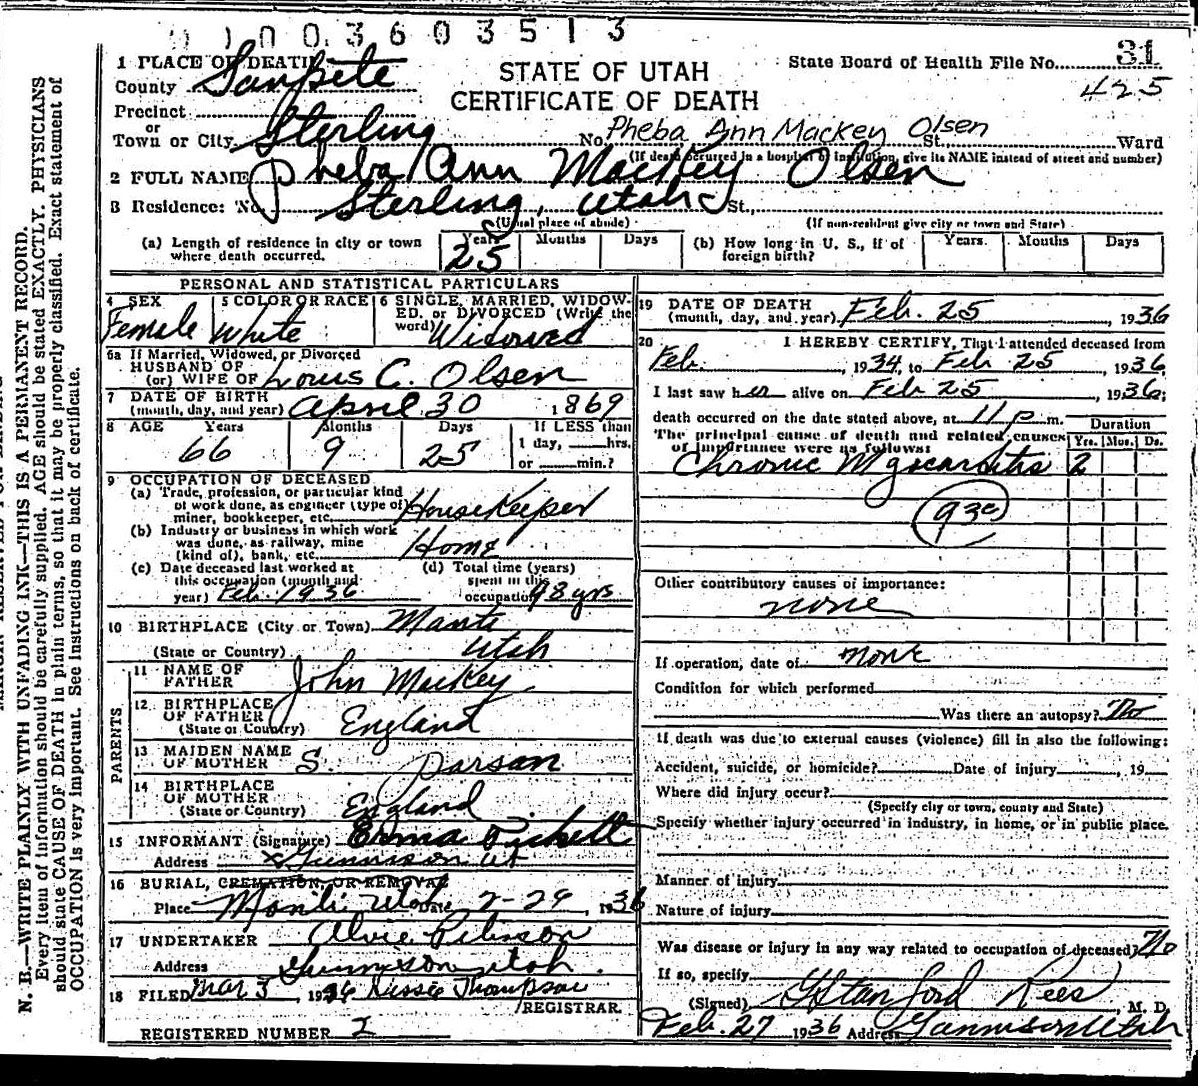 0 1 0 0 3 6 0 3 5 1 3
31
1 PLACE OF DEATH
STATE OF UTAH
CERTIFICATE OF DEATH
State Board of Health File No.
425
County Sanpete
Precinct
or
Town or City Sterling No. Pheba Ann Mackey Olsen St. Ward
(If death occurred in a hospital or institution, give its NAME instead of street and number)
2 FULL NAME Pheba Ann Mackey Olsen
3 Residence: No. Sterling, Utah St.,
(Usual place of abode) (If non-resident give city or town and State)
(a) Length of residence in city or town where death occurred. Years 25 Months Days
(b) How long in U. S., if of foreign birth? Years. Months Days
PERSONAL AND STATISTICAL PARTICULARS
4 SEX Female
5 COLOR OR RACE White
6 SINGLE, MARRIED, WIDOWED, or DIVORCED (Write the word) Widowed
6a If Married, Widowed, or Divorced
HUSBAND OF
(or) WIFE OF Louis C. Olsen
7 DATE OF BIRTH
(month, day, and year) April 30 1869
8 AGE Years 66 Months 9 Days 25 If LESS than 1 day, hrs. or min.?
9 OCCUPATION OF DECEASED
(a) Trade, profession, or particular kind of work done, as engineer (type of) miner, bookkeeper, etc. Housekeeper
(b) Industry or business in which work was done, as railway, mine (kind of), bank, etc. Home
(c) Date deceased last worked at this occupation (month and year) Feb. 1936
(d) Total time (years) spent in this occupation 48 yrs
10 BIRTHPLACE (City or Town) Manti
(State or Country) Utah
PARENTS
11 NAME OF FATHER John Mackey
12 BIRTHPLACE OF FATHER
(State or Country) England
13 MAIDEN NAME OF MOTHER S. Parsan
14 BIRTHPLACE OF MOTHER
(State or Country) England
15 INFORMANT (Signature) Erma Pickett
Address Gunnison Ut
16 BURIAL, CREMATION, OR REMOVAL
Place Manti Utah Date 2-29, 1936
17 UNDERTAKER Alvie
Address Gunnison Utah.
18 FILED Mar 3, 1936 Thompson
/REGISTRAR.
REGISTERED NUMBER 2
19 DATE OF DEATH
(month, day, and year) Feb. 25, 1936
20 I HEREBY CERTIFY, That I attended deceased from
Feb., 1934, to Feb 25, 1936,
I last saw her alive on Feb 25, 1936;
death occurred on the date stated above, at 11 p m.
The principal cause of death and related causes of importance were as follows:
Duration
Yrs. Mos. Ds.
Chronic Myocarditis 2
93c
Other contributory causes of importance:
none
If operation, date of none
Condition for which performed
Was there an autopsy? No
If death was due to external causes (violence) fill in also the following:
Accident, suicide, or homicide? Date of injury, 19
Where did injury occur?
(Specify city or town, county and State)
Specify whether injury occurred in industry, in home, or in public place.
Manner of injury
Nature of injury
Was disease or injury in any way related to occupation of deceased? No
If so, specify
(Signed) G Stanford Rees, M. D.
Feb. 27 1936 Address Gunnison Utah
N. B.—WRITE PLAINLY WITH UNFADING INK—THIS IS A PERMANENT RECORD.
Every item of information should be carefully supplied. AGE should be stated EXACTLY. PHYSICIANS
should state CAUSE OF DEATH in plain terms, so that it may be properly classified. Exact statement of
OCCUPATION is very important. See instructions on back of certificate.